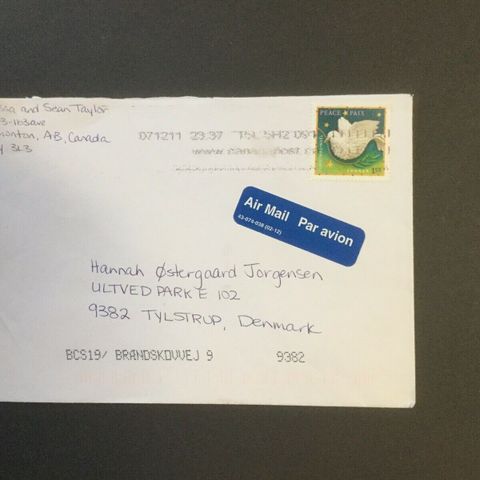 ssa and Sean Taylor
3-163ave
monton, AB, Canada
3L3
071211 23:37 TSL SH2 091
PEACE PAIX
CANADA
Air Mail Par avion
43-074-038 (02-12)
Hannah Østergaard Jorgensen
ULTVED PARK E 102
9382 TYLSTRUP, Denmark
BCS19/ BRANDSKOVVEJ 9 9382